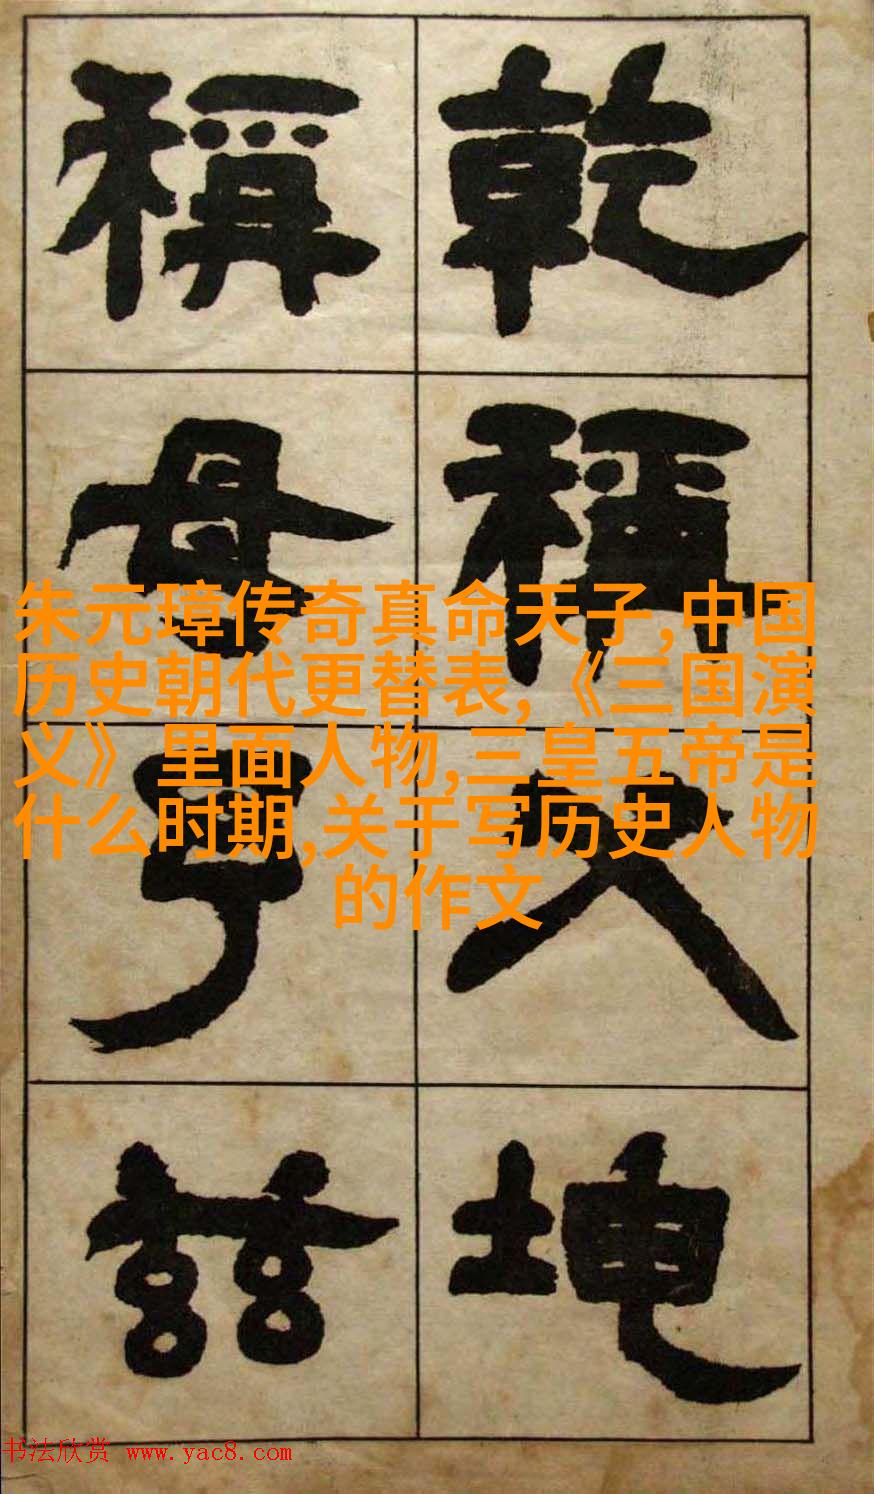 乾稱父坤
稱母予茲
朱元璋传奇真命天子,中国
历史朝代更替表,《三国演
义》里面人物,三皇五帝是
什么时期,关于写历史人物
的作文
书法欣赏 www.yac8.com